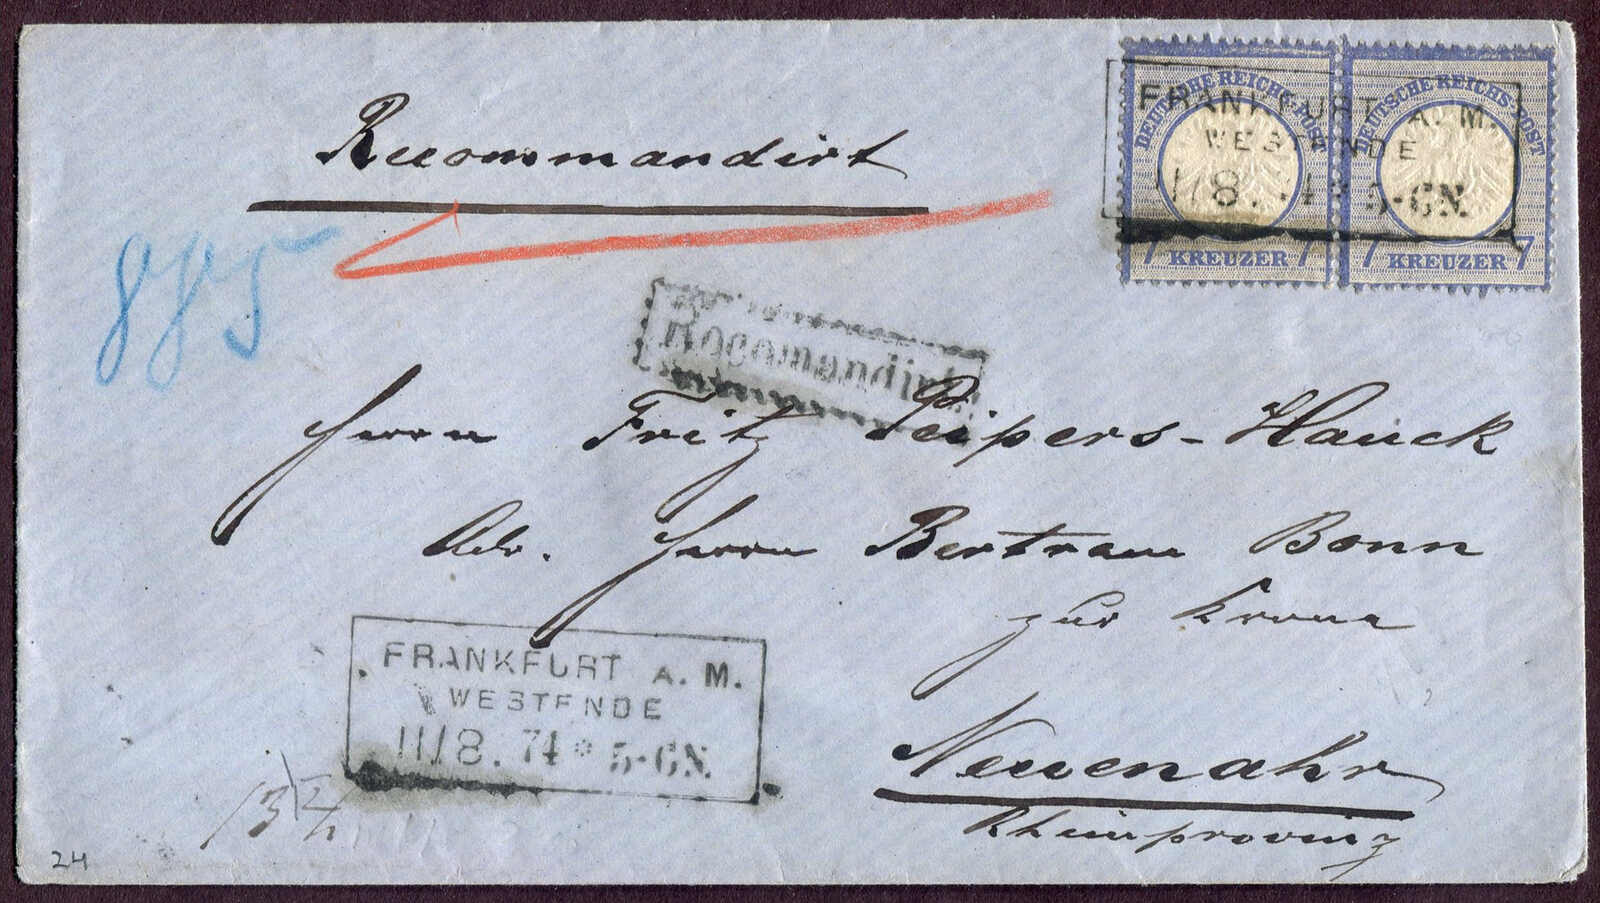 Recommandirt
DEUTSCHE REICHS-POST
7 KREUZER 7
DEUTSCHE REICHS-POST
7 KREUZER 7
FRANKFURT A. M.
WESTENDE
11/8. 74 * 5-6N.
Recomandirt
Herrn Fritz Peipers-Hauck
Adr. Herrn Bertram Bonn
zur Krone
Neuenahr
Rheinprovinz
FRANKFURT A. M.
WESTENDE
11/8. 74 * 5-6N.
24